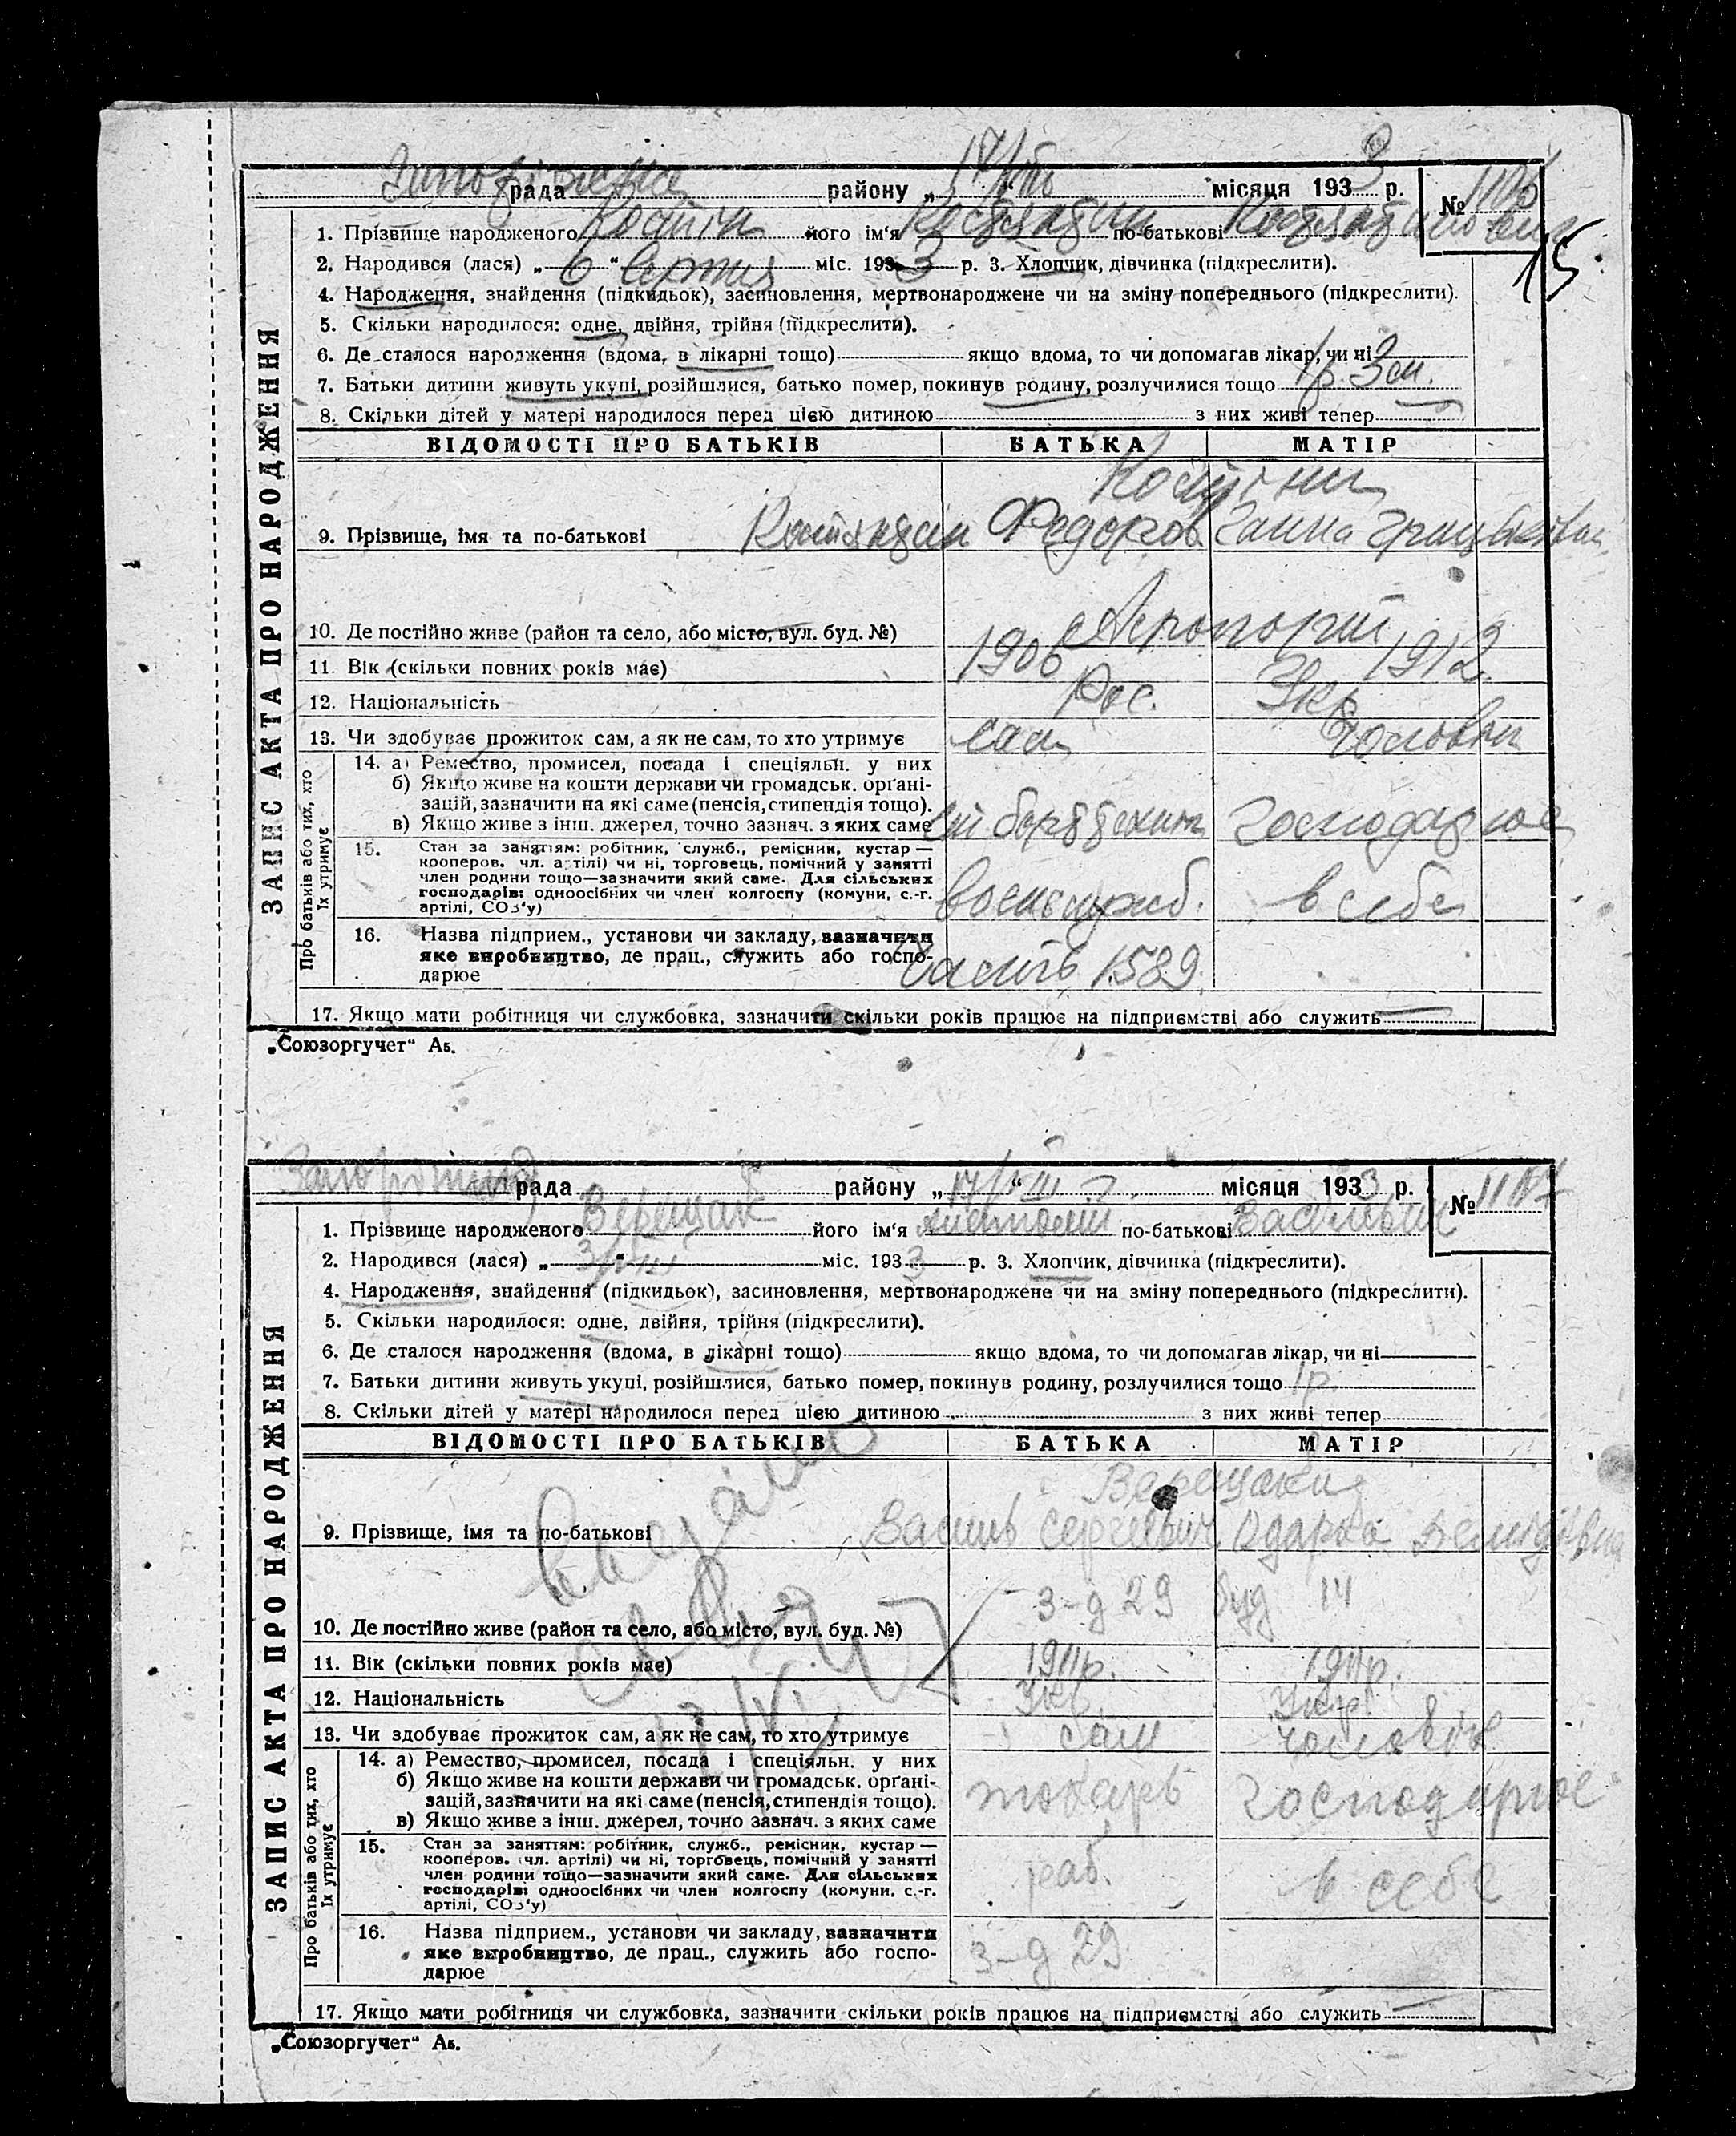 рада району „ 17/VIII “ місяця 1933 р. № 1106
15
1. Прізвище народженого Костін його ім'я Костянтин по-батькові Костянтинович
2. Народився (лася) „ 6 “ Серпня міс. 1933 р. 3. Хлопчик, дівчинка (підкреслити).
4. Народження, знайдення (підкидьок), засиновлення, мертвонароджене чи на зміну попереднього (підкреслити).
5. Скільки народилося: одне, двійня, трійня (підкреслити).
6. Де сталося народження (вдома, в лікарні тощо) якщо вдома, то чи допомагав лікар, чи ні
7. Батьки дитини живуть укупі, розійшлися, батько помер, покинув родину, розлучилися тощо 1р. 3 м.
8. Скільки дітей у матері народилося перед цією дитиною з них живі тепер
ЗАПИС АКТА ПРО НАРОДЖЕННЯ
ВІДОМОСТІ ПРО БАТЬКІВ БАТЬКА МАТІР
Костіни
9. Прізвище, імя та по-батькові Костянтин Федоров. Ганна
10. Де постійно живе (район та село, або місто, вул. буд. №) Аеропорт
11. Вік (скільки повних років має) 1906 1912
12. Національність Рос. Укр.
13. Чи здобуває прожиток сам, а як не сам, то хто утримує сам чоловік
Про батьків або тих, хто їх утримує
14. а) Ремество, промисел, посада і спеціяльн. у них
б) Якщо живе на кошти держави чи громадськ. органі-
зацій, зазначити на які саме (пенсія, стипендія тощо).
в) Якщо живе з інш. джерел, точно зазнач. з яких саме господарює
15. Стан за заняттям: робітник, служб., ремісник, кустар —
кооперов. чл. артілі) чи ні, торговець, помічний у занятті
член родини тощо—зазначити який саме. Для сільських
господарів: одноосібних чи член колгоспу (комуни, с.-г.
артілі, СОЗ'у) в себе
16. Назва підприєм., установи чи закладу, зазначити
яке виробництво, де прац., служить або госпо-
дарює Часть 1589
17. Якщо мати робітниця чи службовка, зазначити скільки років працює на підприємстві або служить
„Союзоргучет“ А5.
рада району „ 17/VIII “ місяця 1933 р. № 1107
1. Прізвище народженого Верещак його ім'я Анатолій по-батькові Васильич
2. Народився (лася) „ 3/VIII “ міс. 1933 р. 3. Хлопчик, дівчинка (підкреслити).
4. Народження, знайдення (підкидьок), засиновлення, мертвонароджене чи на зміну попереднього (підкреслити).
5. Скільки народилося: одне, двійня, трійня (підкреслити).
6. Де сталося народження (вдома, в лікарні тощо) якщо вдома, то чи допомагав лікар, чи ні
7. Батьки дитини живуть укупі, розійшлися, батько помер, покинув родину, розлучилися тощо 1р.
8. Скільки дітей у матері народилося перед цією дитиною з них живі тепер
ЗАПИС АКТА ПРО НАРОДЖЕННЯ
ВІДОМОСТІ ПРО БАТЬКІВ БАТЬКА МАТІР
Верещаки
9. Прізвище, імя та по-батькові Василь Сергеевич Одарка Демидівна
10. Де постійно живе (район та село, або місто, вул. буд. №) 3-д 29 буд 14
11. Вік (скільки повних років має) 1911р. 1911р.
12. Національність Укр. Укр.
13. Чи здобуває прожиток сам, а як не сам, то хто утримує сам чоловік
Про батьків або тих, хто їх утримує
14. а) Ремество, промисел, посада і спеціяльн. у них
б) Якщо живе на кошти держави чи громадськ. органі-
зацій, зазначити на які саме (пенсія, стипендія тощо).
в) Якщо живе з інш. джерел, точно зазнач. з яких саме токарь господарює
15. Стан за заняттям: робітник, служб., ремісник, кустар —
кооперов. чл. артілі) чи ні, торговець, помічний у занятті
член родини тощо—зазначити який саме. Для сільських
господарів: одноосібних чи член колгоспу (комуни, с.-г.
артілі, СОЗ'у) раб. в себе
16. Назва підприєм., установи чи закладу, зазначити
яке виробництво, де прац., служить або госпо-
дарює 3-д 29
17. Якщо мати робітниця чи службовка, зазначити скільки років працює на підприємстві або служить
„Союзоргучет“ А5.